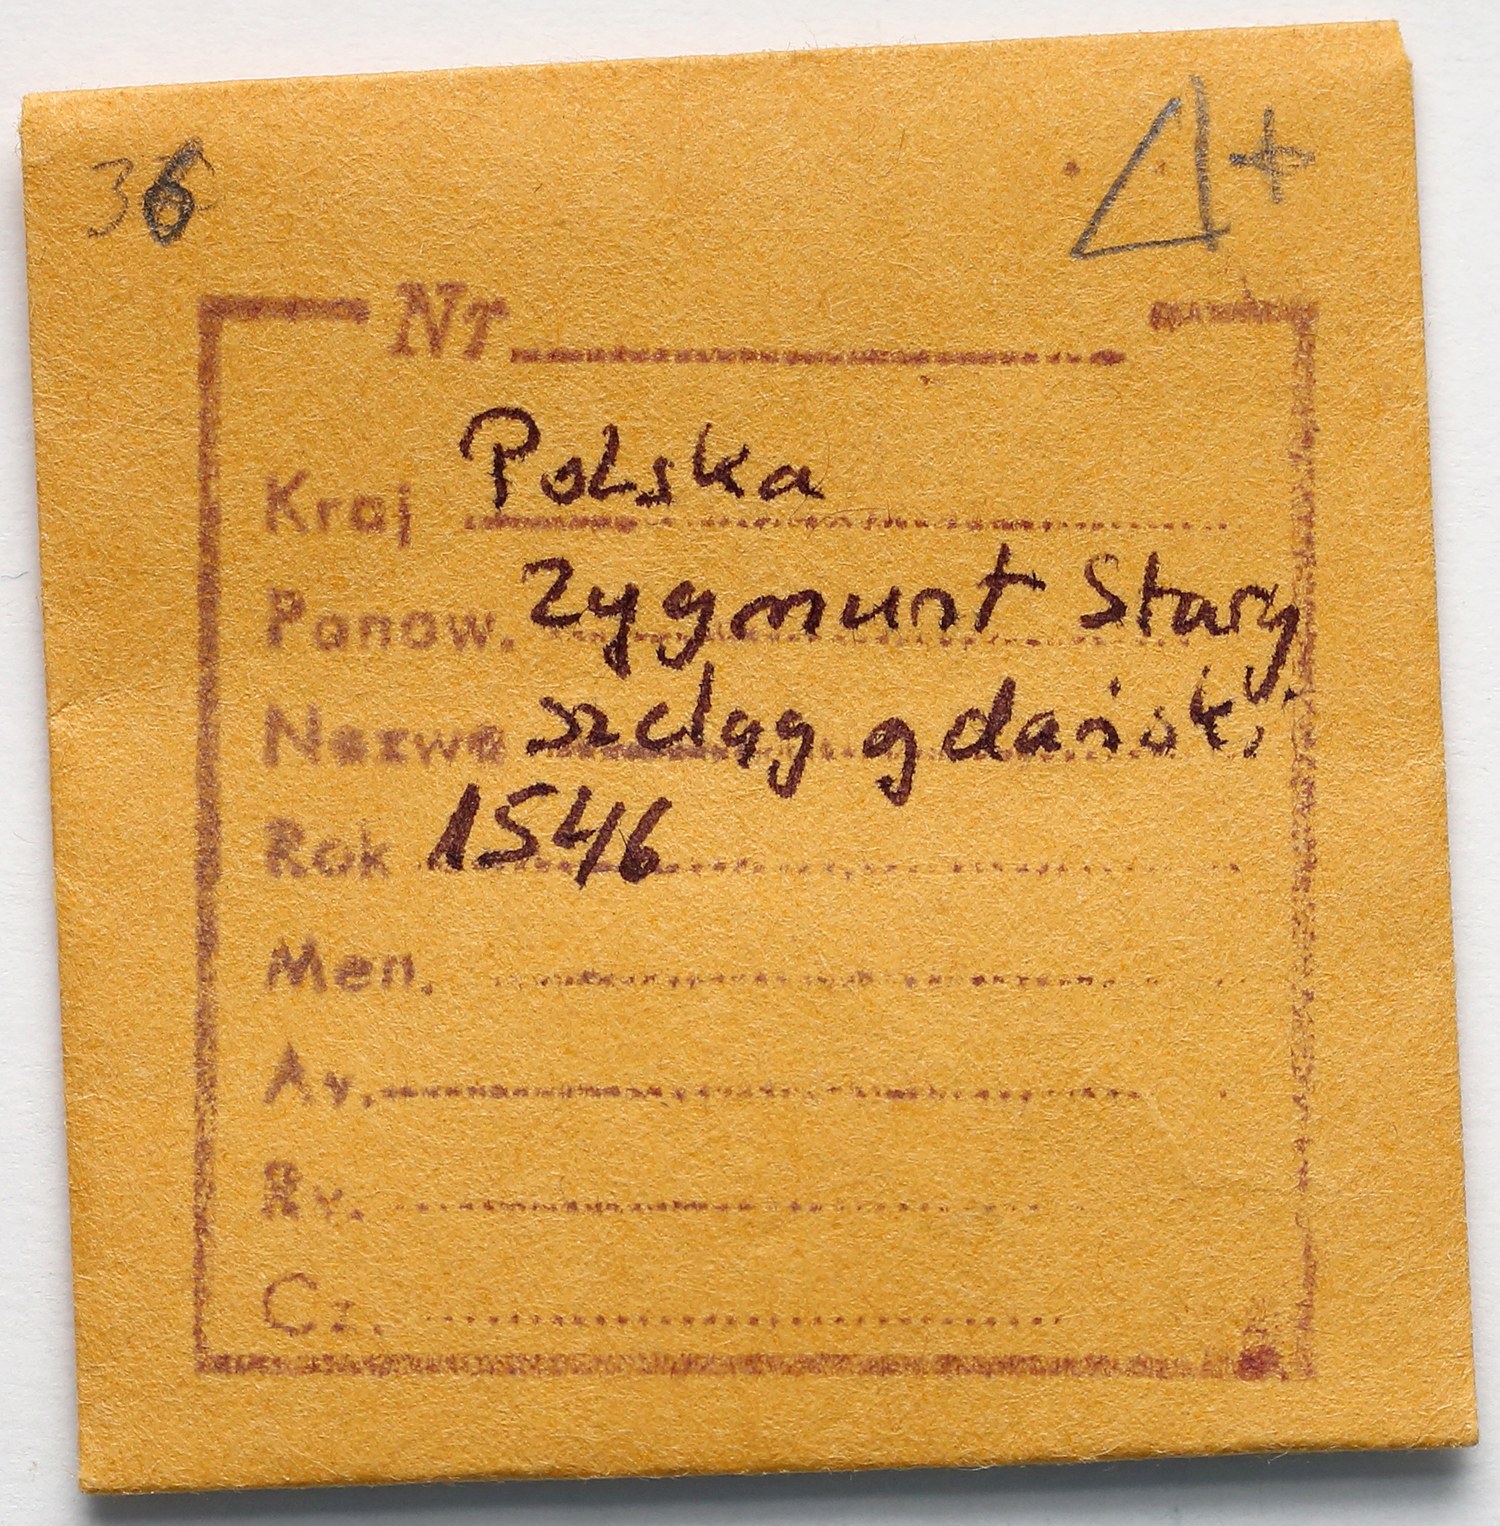 36
Nr
Kraj Polska
Panow. Zygmunt Stary
Nazwa szeląg gdański
Rok 1546
Men.
Av.
Rv.
Cz.